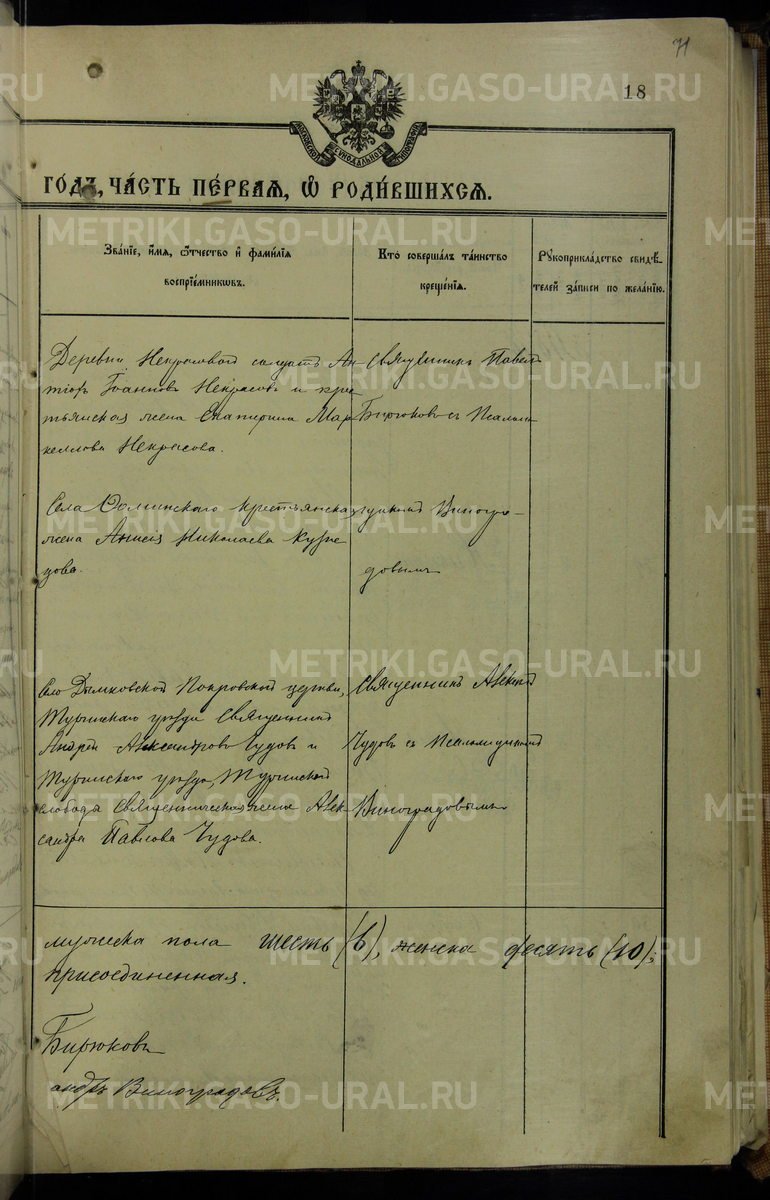 71
18
МОСКОВСКОЙ СѴНОДАЛЬНОЙ ТИПОГРАФІИ
ГОДЪ, ЧАСТЬ ПЕРВАЯ, Ѿ РОДИВШИХСЯ.
Званіе, имя, отчество и фамилія
воспріемниковъ.
Кто совершалъ таинство
крещенія.
Рукоприкладство свидѣ-
телей записи по желанію.
Деревни Некрасовой солдатъ
Іоанновъ Некрасовъ и кре
стьянская жена Екатерина Мар
келлова Некрасова.
Священникъ Павелъ
Бирюковъ съ Псалом
Села крестьянская
жена Анисія Николаева Кузне
цова.
щикомъ Виногра-
довымъ
Село Дымковской Покровской церкви,
Туринскаго уѣзда Священникъ
Андрей Александровъ Чудовъ и
Туринскаго уѣзда, Туринской
слободы Священническая жена Алек
сандра Павлова Чудова.
Священникъ Алексій
Чудовъ съ Псаломщикомъ
Виноградовымъ
мужеска пола шесть (6), женска десять (10),
присоединенная.
Бирюковъ
Виноградовъ.
METRIKI.GASO-URAL.RU